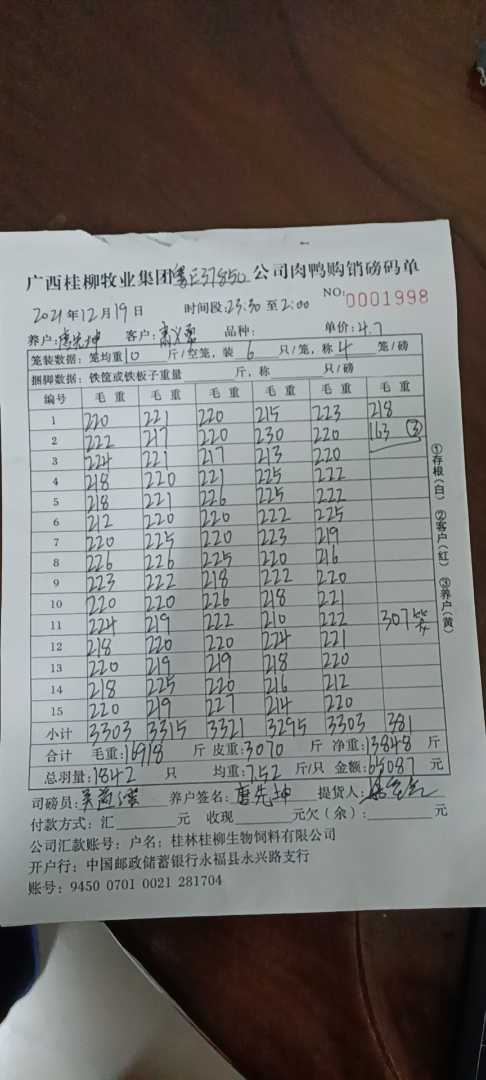 广西桂柳牧业集团粤E37850公司肉鸭购销磅码单
2021年12月19日 时间段:23:30至2:00 NO:0001998
养户:唐先坤 客户: 品种: 单价:4.7
笼装数据:笼均重10斤/空笼,装6只/笼,称4笼/磅
捆脚数据:铁筐或铁板子重量 斤,称 只/磅
编号 毛重 毛重 毛重 毛重 毛重 毛重
1 220 221 220 215 223 218
2 222 217 220 230 220 163 ③
3 224 221 217 213 220
4 218 220 221 225 222
5 218 221 226 225 222
6 212 220 220 222 225
7 220 225 220 223 219
8 226 226 225 220 216
9 223 222 218 222 220
10 220 220 226 218 221
11 224 219 222 210 222 307笼
12 218 220 220 224 221
13 220 219 219 218 220
14 218 225 220 216 212
15 220 219 227 214 220
小计 3303 3315 3321 3295 3303 381
合计 毛重:16918斤 皮重:3070斤 净重:13848斤
总羽量:1842只 均重:7.52斤/只 金额:65087元
司磅员: 养户签名:唐先坤 提货人:
付款方式:汇 元 收现 元欠(余): 元
公司汇款账号:户名:桂林桂柳生物饲料有限公司
开户行:中国邮政储蓄银行永福县永兴路支行
账号:9450 0701 0021 281704
①存根(白) ②客户(红) ③养户(黄)